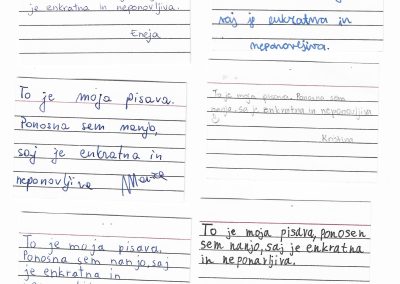 je enkratna in neponovljiva.
Eneja
saj je enkratna in
neponovljiva.
To je moja pisava.
Ponosna sem nanjo,
saj je enkratna in
neponovljiva
To je moja pisava. Ponosna sem
nanjo, saj je enkratna in neponovljiva
Kristina
To je moja pisava.
Ponosna sem nanjo, saj
je enkratna in
To je moja pisava, ponosen
sem nanjo, saj je enkratna
in neponavljiva.